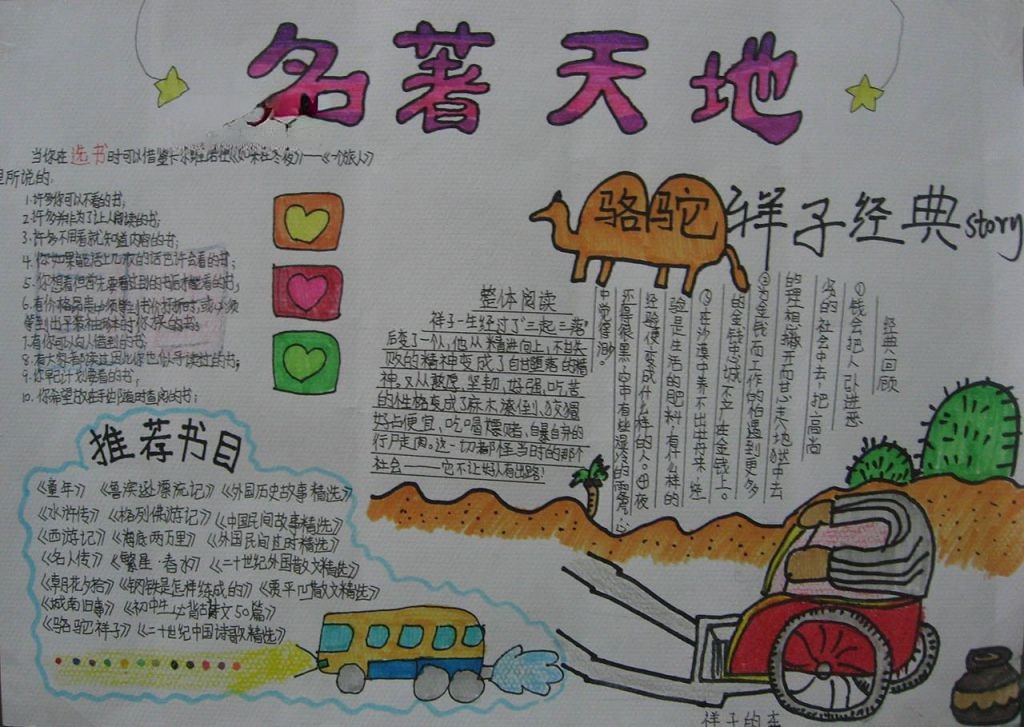 名著天地
当你在选书时可以借鉴卡尔维诺在《如果在冬夜》——《一个旅人》
里所说的:
1.许多你可以不看的书;
2.许多并非为了让人阅读的书;
3.许多不用看就知道内容的书;
4.你如果能活上几次的话也许会看的书;
5.你想看但首先要看过到的书后才能看的书;
7.有你可以向人借到的书;
8.有大家都读过因此你也似乎读过的书;
9.你早已计划要看的书;
10.你希望放在手边随时查阅的书;
骆驼祥子经典story
整体阅读
祥子一生经过了“三起三落”
后变了一个人,他从精进向上,不甘失
败的精神变成了自甘堕落的精
神。又从敦厚、坚韧、好强、吃苦
的性格变成了麻木潦倒、狡猾
好占便宜、吃喝嫖赌、自暴自弃的
行尸走肉。这一切都怪当时的那个
社会——它不让好人有出路!
经典回顾
①钱会把人引进恶
劣的社会中去,把高尚
的理想撇开而甘心走入地狱中去
的金钱之城不产在金钱上。
③在沙漠中养不出牡丹来,经
验是生活的肥料,有什么样的
经验便变成什么样的人。④夜
还得很黑,空中有些湿冷的雾气,心
中觉得渺
推荐书目
《童年》《鲁滨逊漂流记》《外国历史故事精选》
《水浒传》《格列佛游记》《中国民间故事精选》
《西游记》《海底两万里》《外国民间故事精选》
《名人传》《繁星·春水》《二十世纪外国散文精选》
《朝花夕拾》《钢铁是怎样练成的》《贾平凹散文精选》
《城南旧事》《初中生必背古文50篇》
《骆驼祥子》《二十世纪中国诗歌精选》
祥子的车